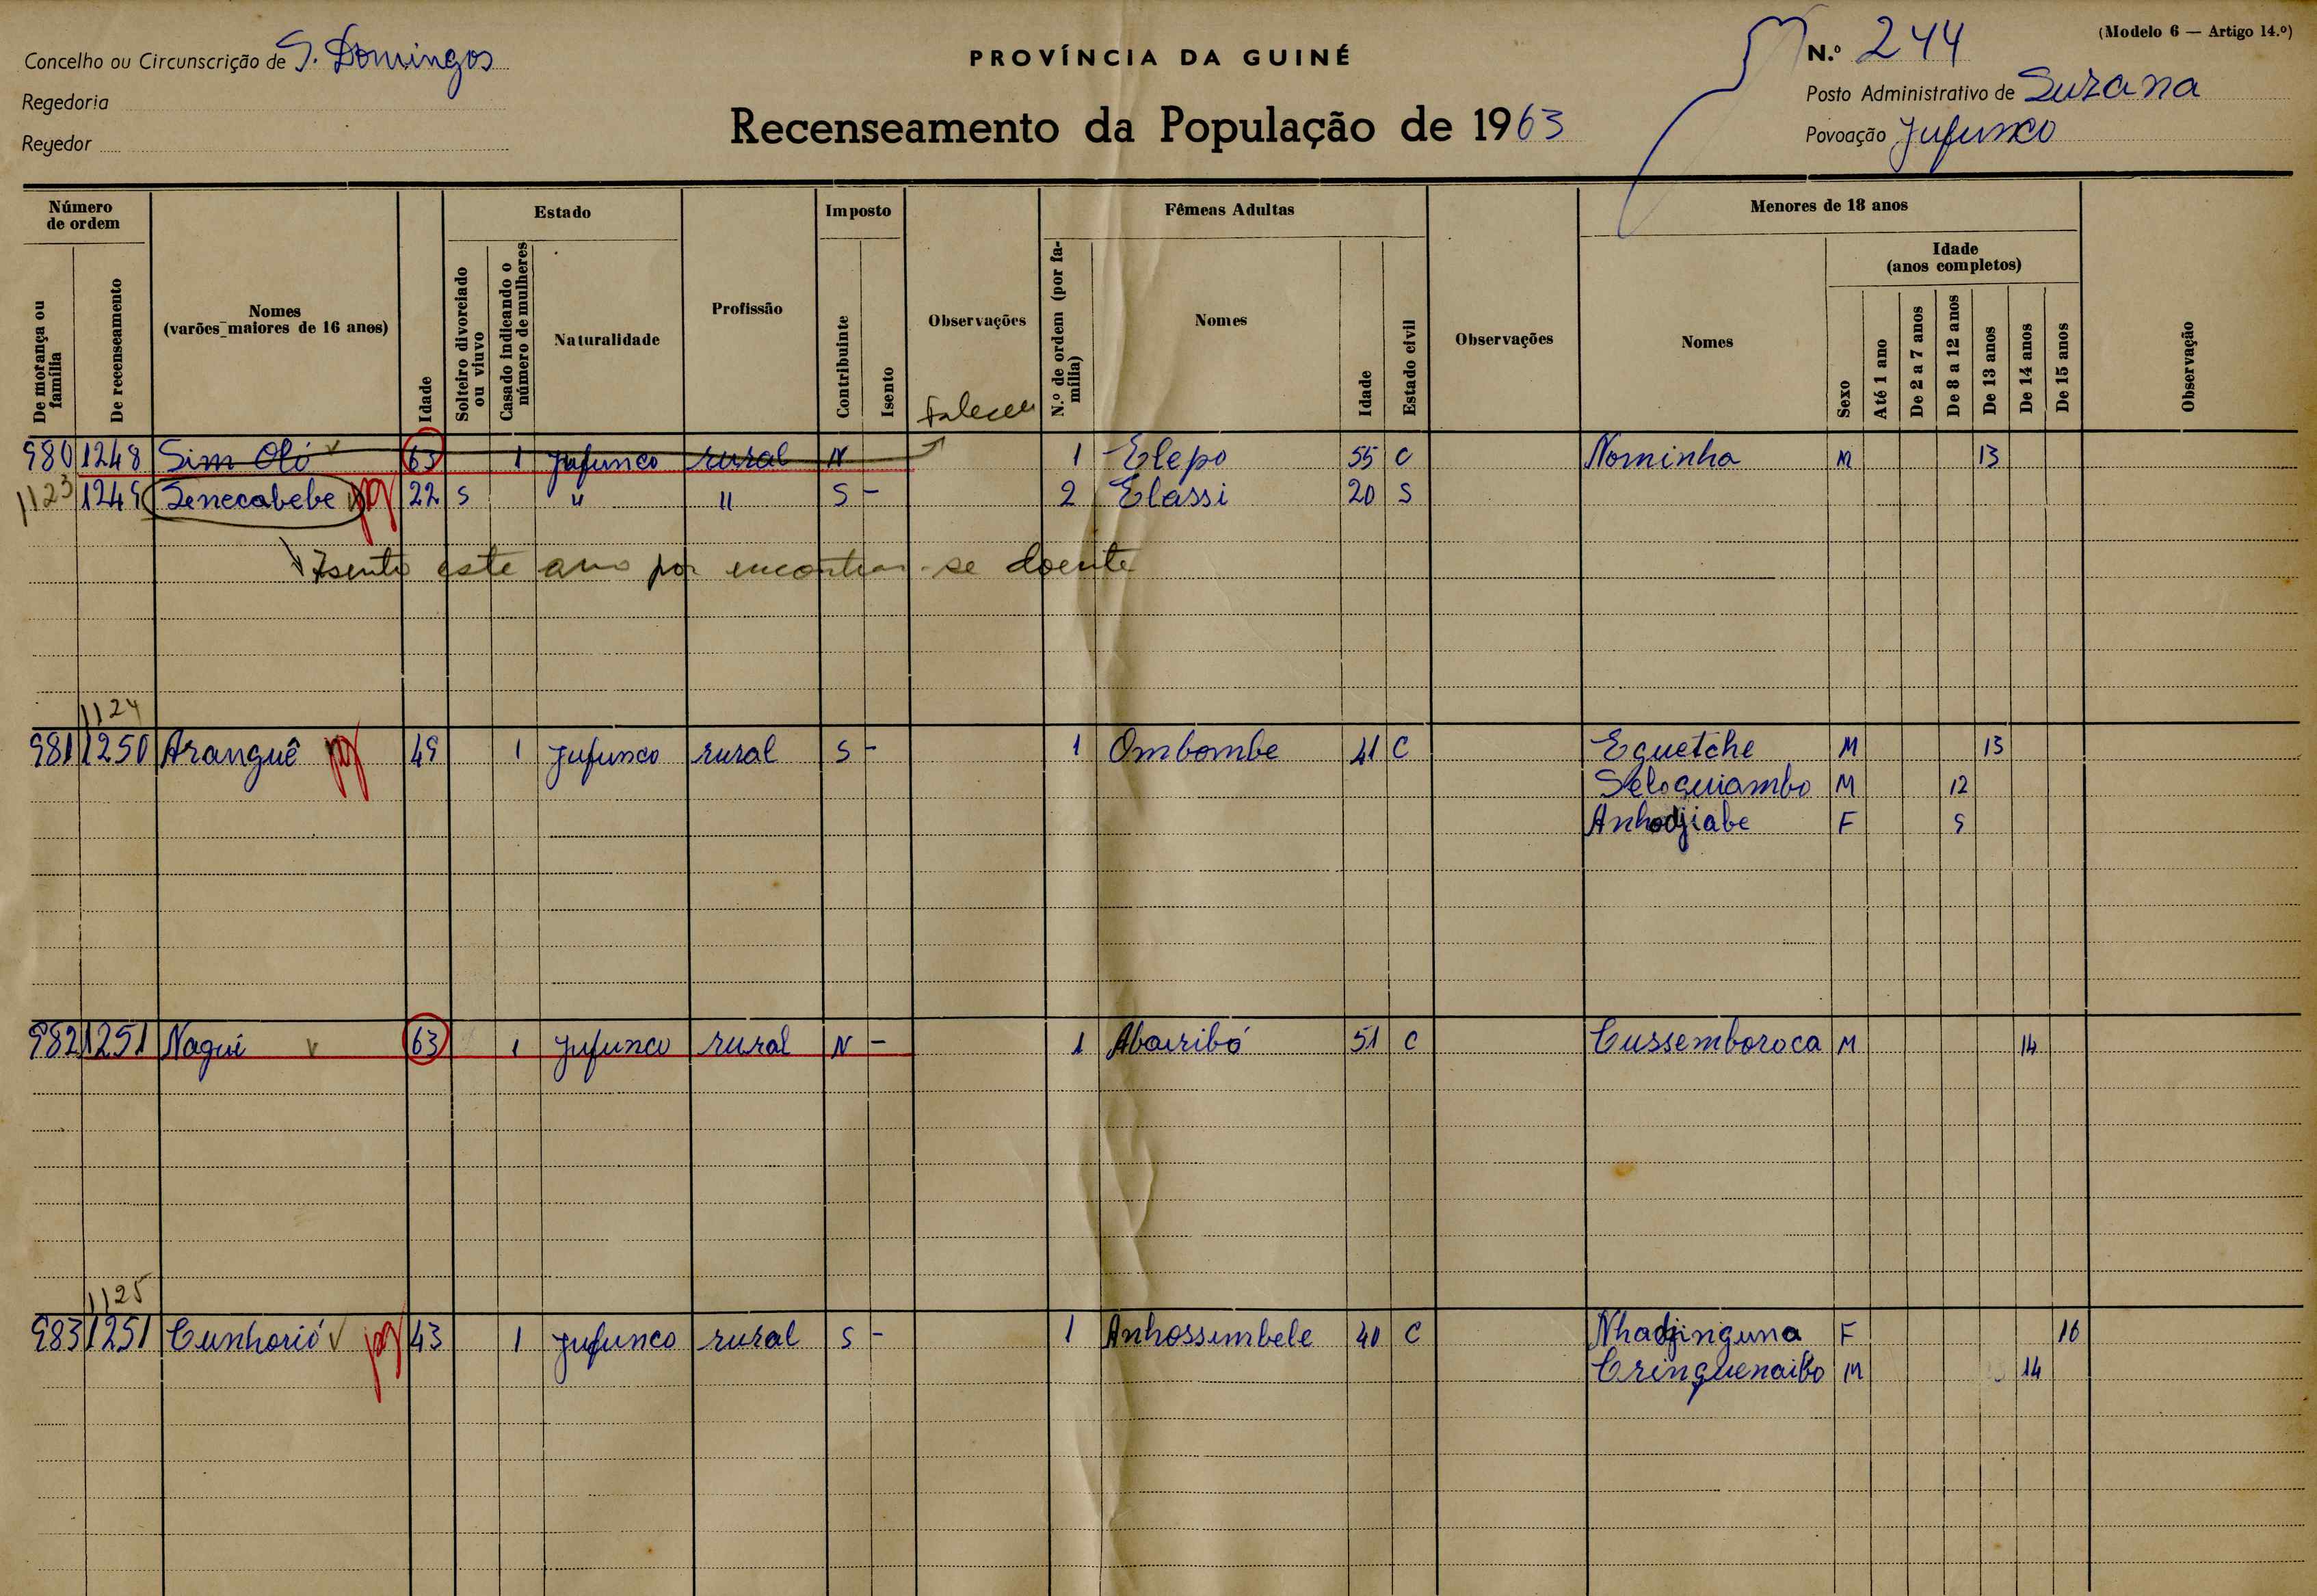 (Modelo 6 — Artigo 14.º)
Concelho ou Circunscrição de S. Domingos
Regedoria
Regedor
PROVÍNCIA DA GUINÉ
Recenseamento da População de 1963
N.º 244
Posto Administrativo de Suzana
Povoação Jufunco
Número de ordem
De morança ou família
De recenseamento
Nomes (varões maiores de 16 anos)
Idade
Estado
Solteiro divorciado ou viuvo
Casado indicando o número de mulheres
Naturalidade
Profissão
Imposto
Contribuinte
Isento
Observações
Fêmeas Adultas
N.º de ordem (por família)
Nomes
Idade
Estado civil
Observações
Menores de 18 anos
Nomes
Sexo
Idade (anos completos)
Até 1 ano
De 2 a 7 anos
De 8 a 12 anos
De 13 anos
De 14 anos
De 15 anos
Observação
Faleceu
980 1248 Sim Oló 63 1 Jufunco rural N 1 Elepo 55 C Nominho M 13
1123 1249 Senecabebe pg 22 S " " S - 2 Elassi 20 S
Isento este ano por encontrar-se doente
1124
981 1250 Aranguê pg 49 1 Jufunco rural S - 1 Ombombe 41 C Eguetche M 13
Seloguiambo M 12
Anhodjiabe F 9
982 1251 Nagui 63 1 Jufunco rural N - 1 Abairibó 51 C Cussemboroca M 14
1125
983 1251 Cunhorió pg 43 1 Jufunco rural S - 1 Anhossimbele 40 C Nhadjinguna F 16
Cringuenaibo M 14